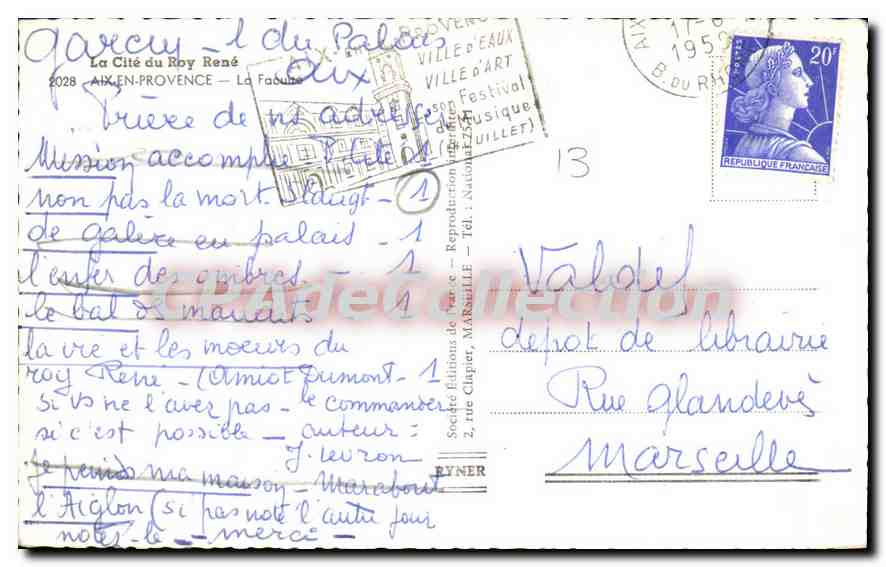 Garcin - 1 du Palais
Aix
La Cité du Roy René
2028 AIX-EN-PROVENCE — La Faculté
Prière de ns adresser
Mission accomplie P. cité 1
non pas la mort 1
de galère en palais - 1
l'enfer des ombres - 1
le bal des maudits 1
la vie et les moeurs du
roy René - (Amiot Dumont - 1
si vs ne l'avez pas - le commander
si c'est possible - auteur =
J. Levron
Je ma maison - Marabout
l'Aiglon (si pas noté l'autre jour
notez-le - merci -
PROVENCE
VILLE D'EAUX
VILLE D'ART
son Festival
de Musique
(JUILLET)
AIX
17-6
1959
B. DU RH
POSTES
20F
REPUBLIQUE FRANÇAISE
13
Société Éditions de France — Reproduction interdite
2, rue Clapier, MARSEILLE — Tél. : National 25-41
RYNER
Valdel
depot de librairie
Rue Glandevès
Marseille
CPAdeCollection